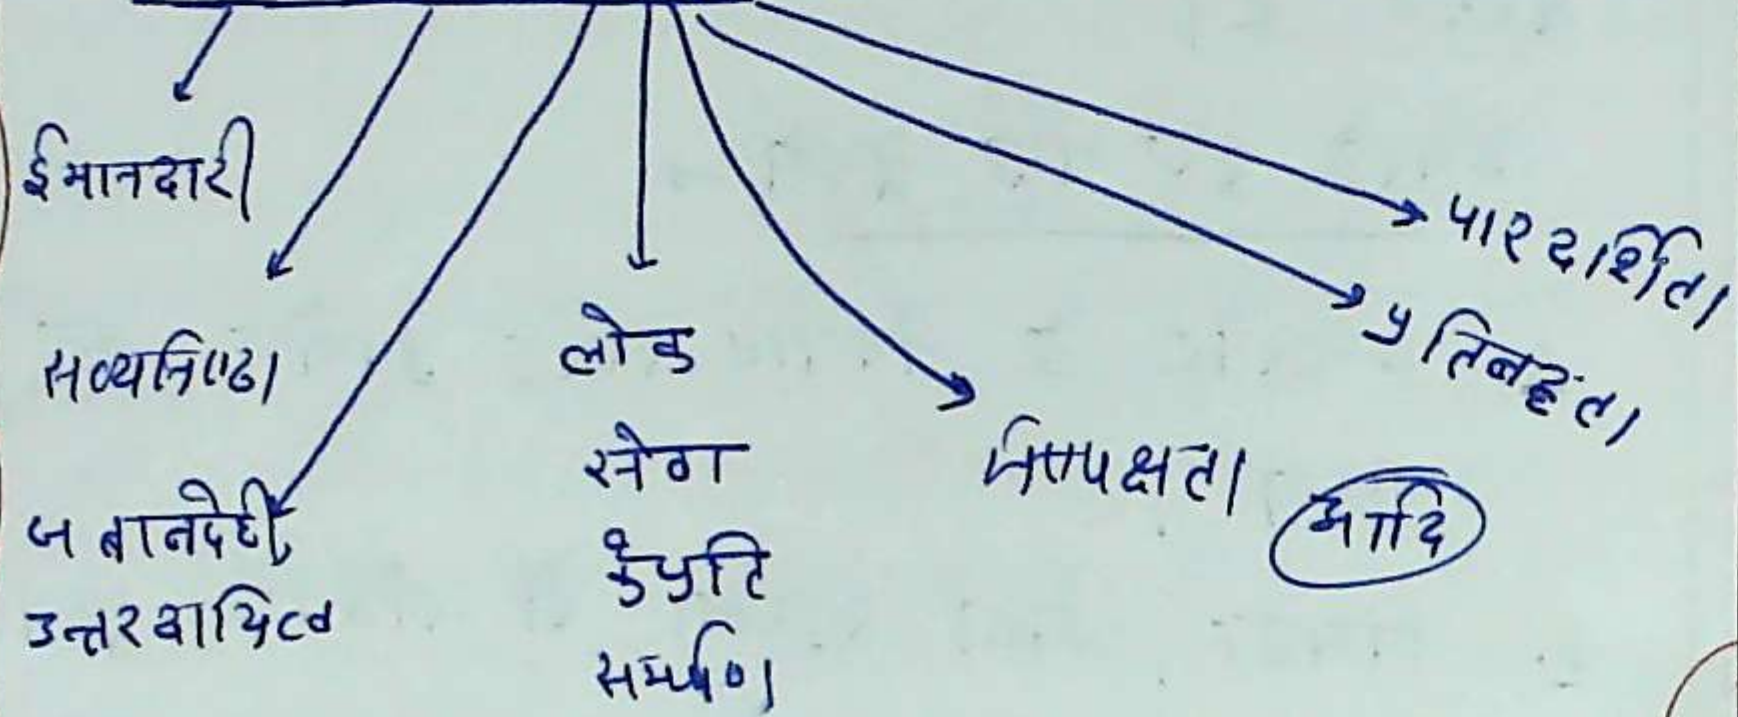 ईमानदारी
सत्यनिष्ठा
जबावदेही,
उत्तरदायित्व
लोक
सेवा
के प्रति
समर्पण
निष्पक्षता
आदि
प्रतिबद्धता
पारदर्शिता